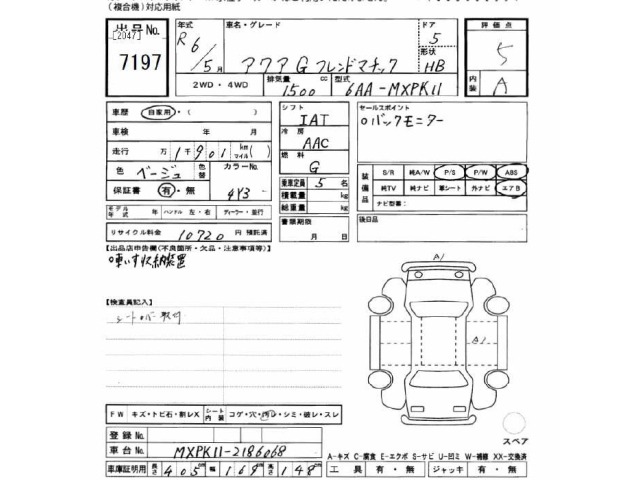 (複合機)対応用紙
出品No.
[2047]
7197
年式 車名・グレード ドア 評価点
R6/5月 アクア G フレンドマチック 5 形状 HB 5
2WD・4WD 排気量 1500 cc 型式 6AA-MXPK11 内装 A
車歴 自家用・( )
車検 年 月
走行 万 1千901 km (マイル)
色 ベージュ 色替 カラーNo. 4Y3
保証書 有・無
モデル年式 年 ハンドル 左・右 ディーラー・並行
リサイクル料金 10720 円 預託済
シフト IAT
冷房 AAC
燃料 G
乗車定員 5 名
積載量 kg
総重量 kg
書類期限 月 日
セールスポイント
○バックモニター
装備品 S/R 純A/W P/S P/W ABS
純TV 純ナビ 革シート 外ナビ エアB
ナビ型番:
後日品
【出品店申告欄(不良箇所・欠品・注意事項等)】
車いす収納装置
【検査員記入】
シートカバー取付
FW キズ・トビ石・割レX シート内装 コゲ・穴・汚レ・シミ・破レ・スレ
A1
A1
スペア
登録No.
車台No. MXPK11-2186068
A-キズ C-腐食 E-エクボ S-サビ U-凹ミ W-補修 XX-交換済
車庫証明用 長さ 405 cm 幅 169 cm 高さ 148 cm 工具 有・無 ジャッキ 有・無